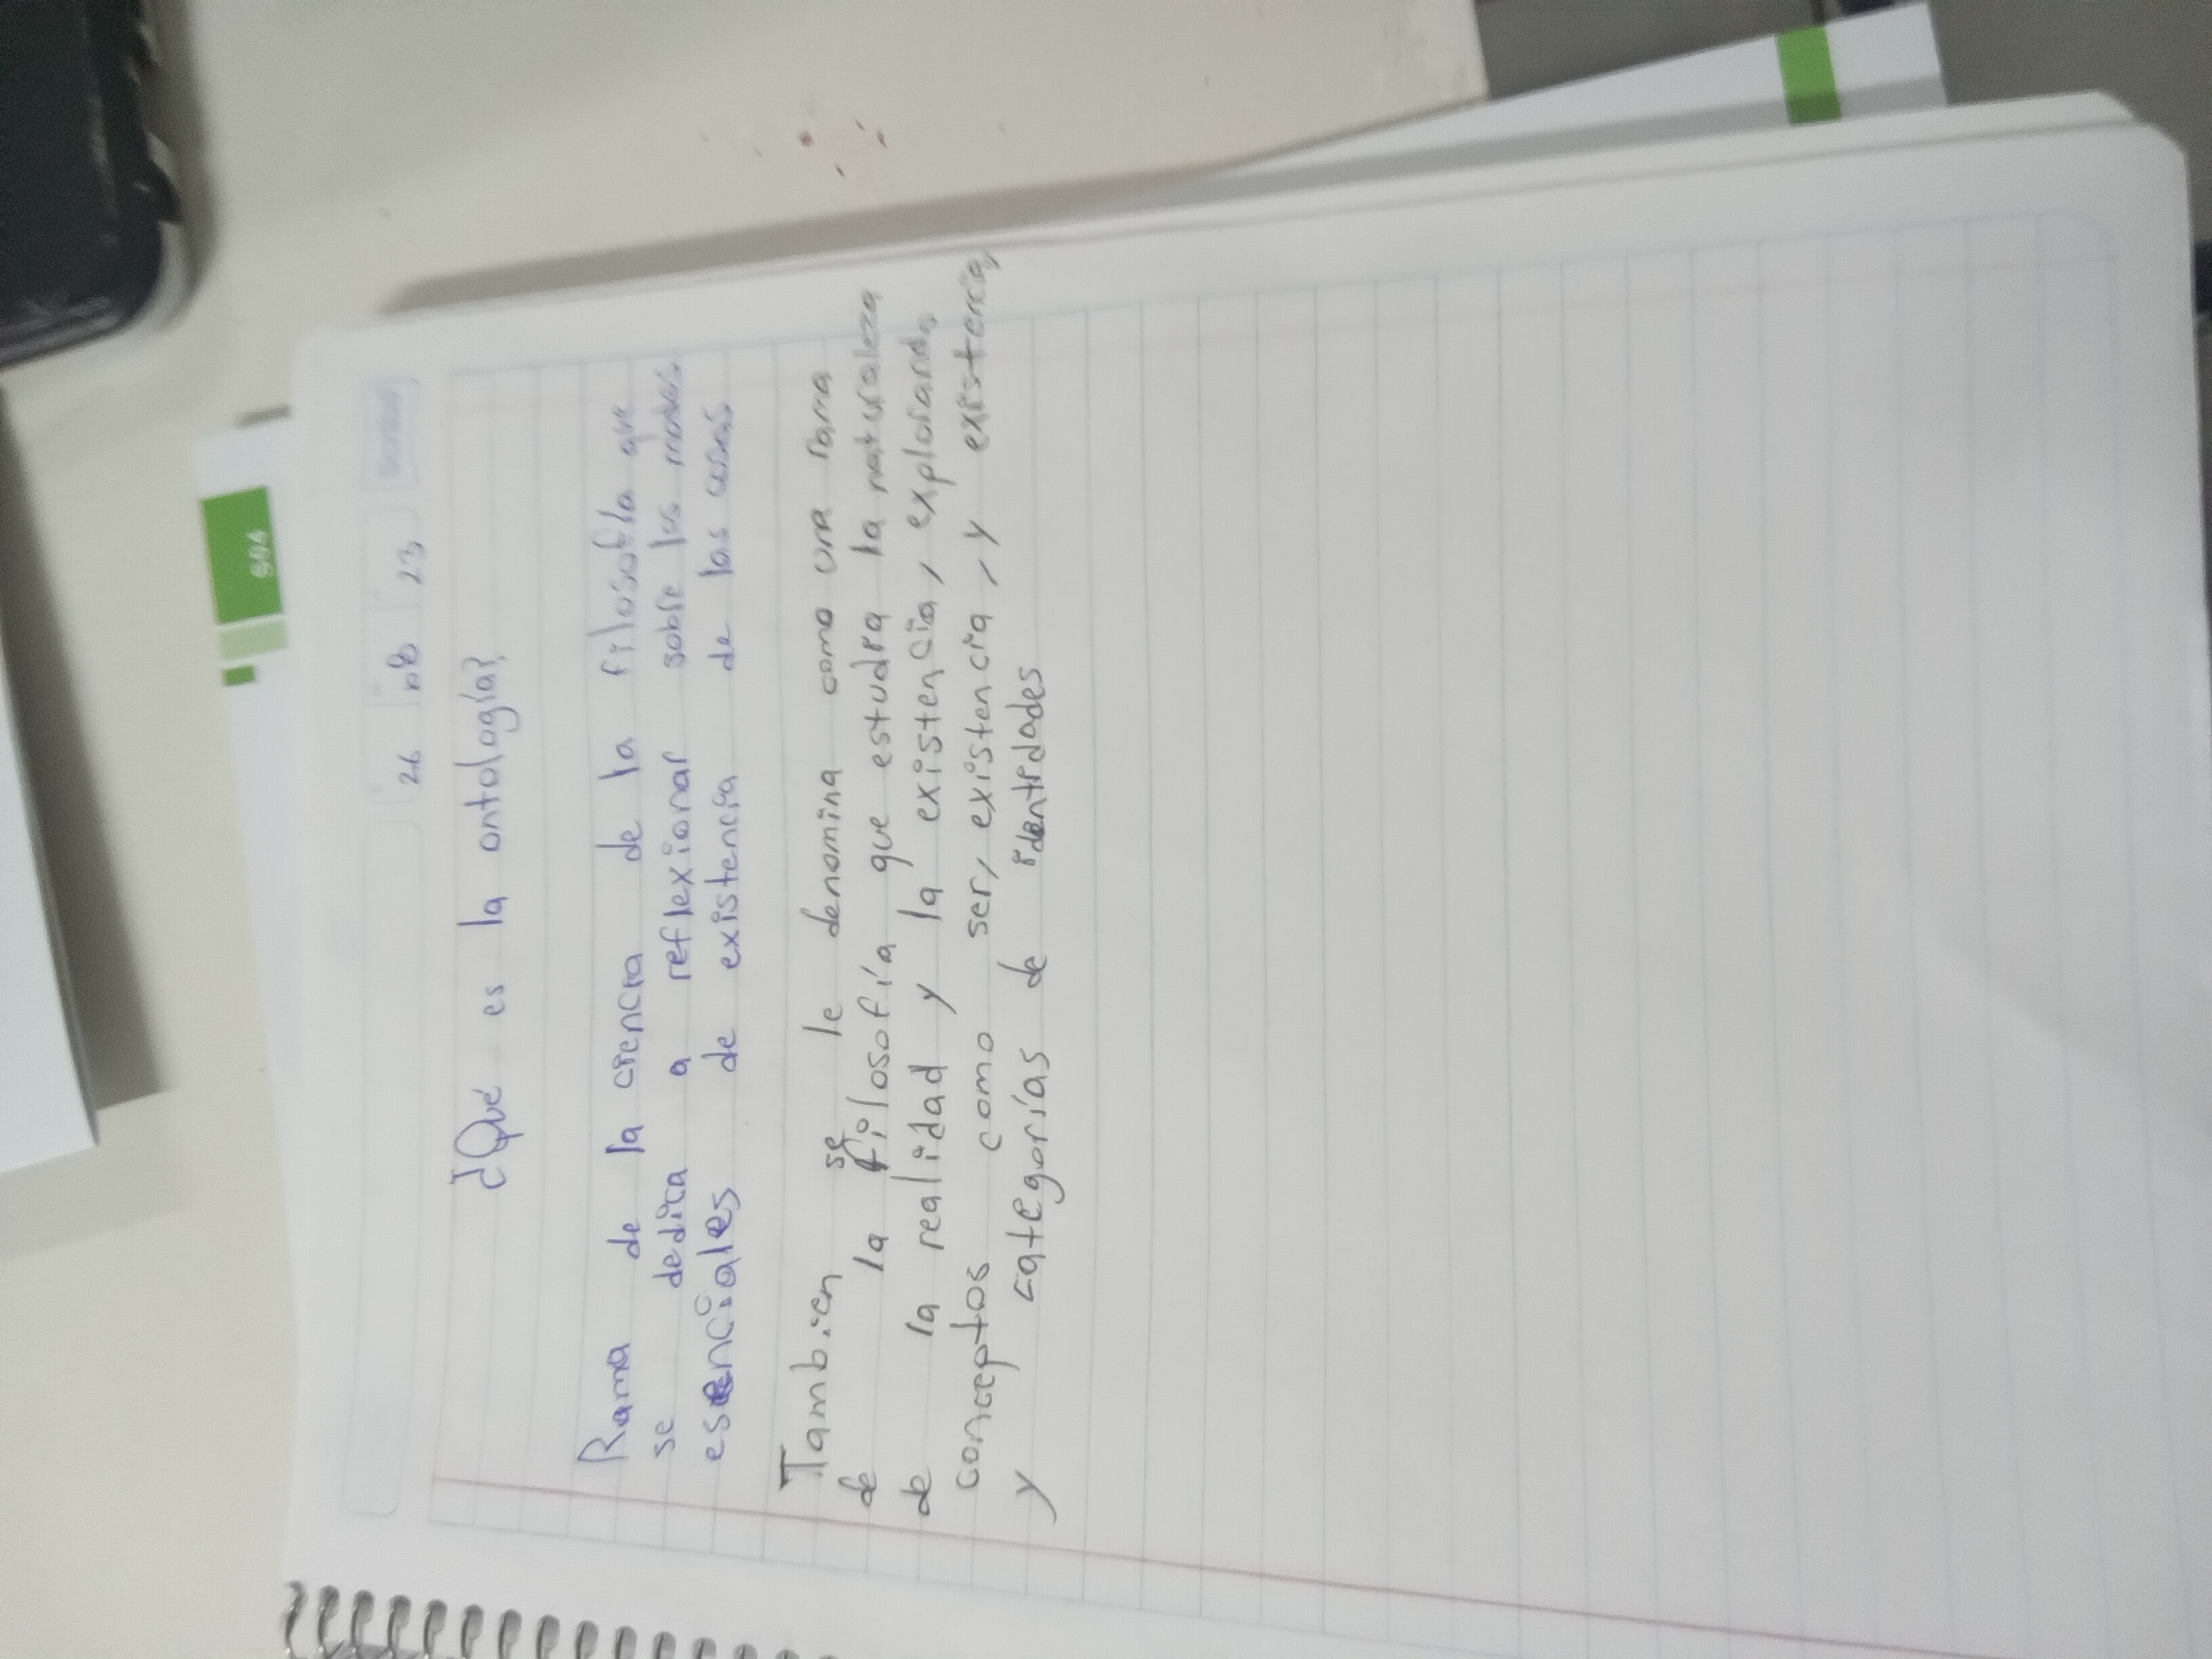 26 08 23
¿Qué es la ontología?
Rama de la ciencia de la filosofía que
se dedica a reflexionar sobre los modos
esenciales de existencia de las cosas
Tambien se le denomina como una rama
de la filosofía que estudia la naturaleza
de la realidad y la existencia, explorando
conceptos como ser, existencia, y existencia,
y categorías de identidades
504